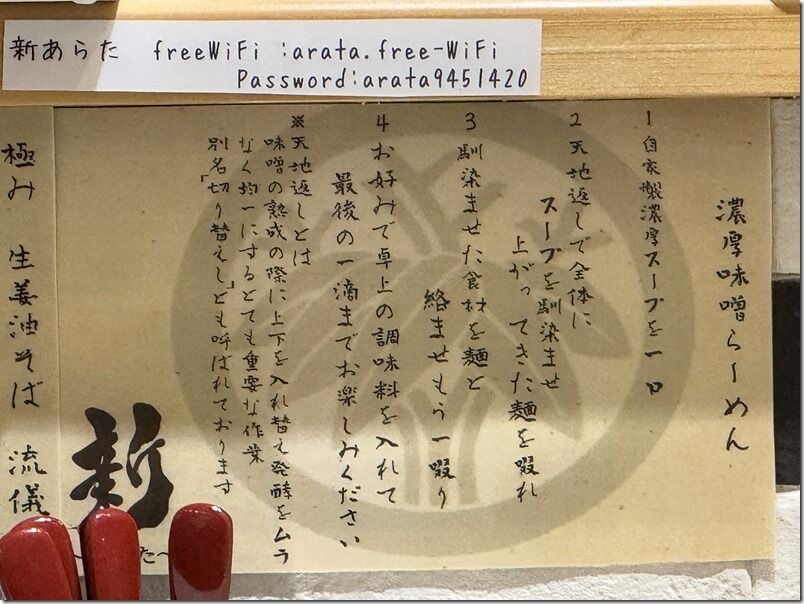 新あらた　freeWiFi :arata.free-WiFi
Password:arata9451420
濃厚味噌らーめん
1 自家製濃厚スープを一口
2 天地返しで全体に
スープを馴染ませ
上がってきた麺を啜れ
3 馴染ませた食材を麺と
絡ませもう一啜り
4 お好みで卓上の調味料を入れて
最後の一滴までお楽しみください
※天地返しとは
味噌の熟成の際に上下を入れ替え発酵をムラ
なく均一にするとても重要な作業
別名「切り替えし」とも呼ばれております
新
極み　生姜油そば　流儀